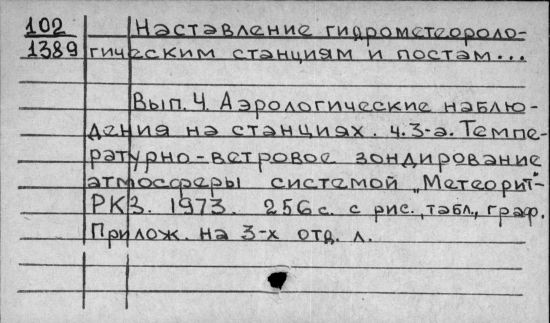 102 Наставление гидрометеороло-
1389 гическим станциям и постам...
Вып. 4. Аэрологические наблю-
дения на станциях. ч. 3-а. Темпе-
ратурно-ветровое зондирование
атмосферы системой „Метеорит"-
РКЗ. 1973. 256 с. с рис., табл., граф.
Прилож. на 3-х отд. л.